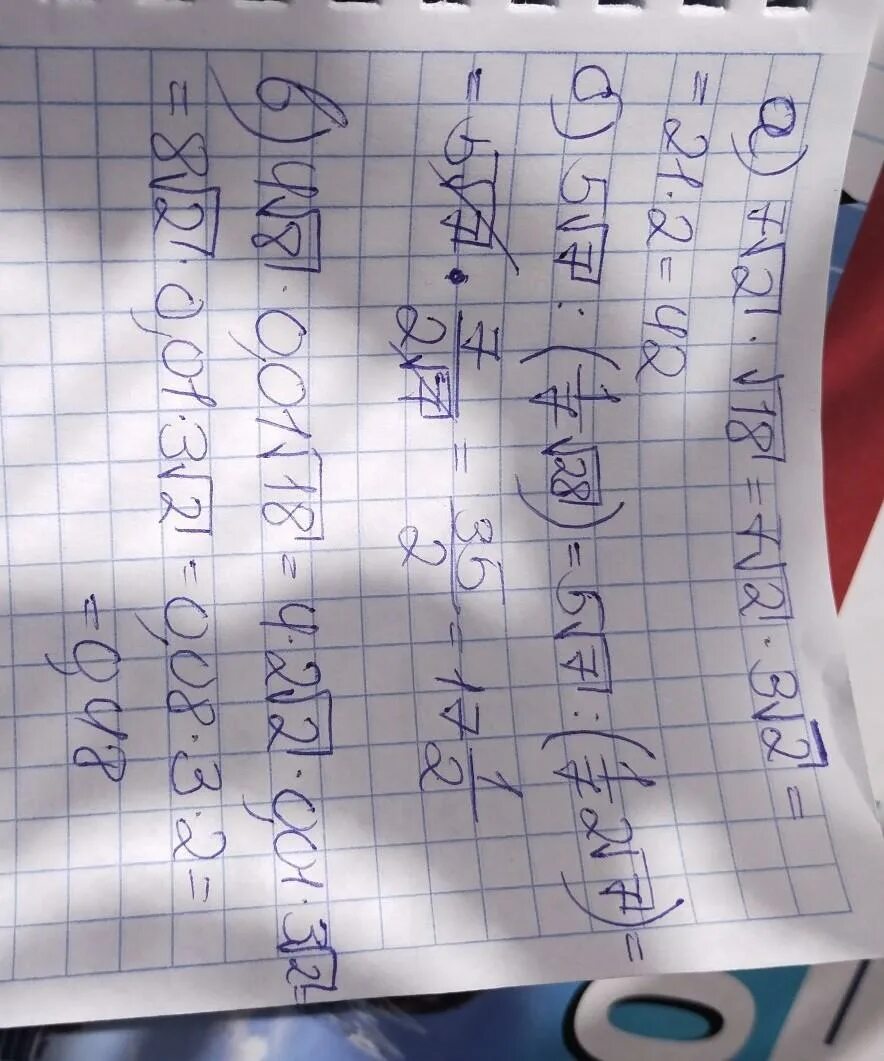 а) 7√2 · √18 = 7√2 · 3√2 =
= 21 · 2 = 42
б) 5√7 : (1/7 √28) = 5√7 : (1/7 2√7) =
= 5√7 · 7/2√7 = 35/2 = 17 1/2
в) 4√8 · 0,01√18 = 4·2√2 · 0,01·3√2 =
= 8√2 · 0,01·3√2 = 0,08·3·2 =
= 0,48